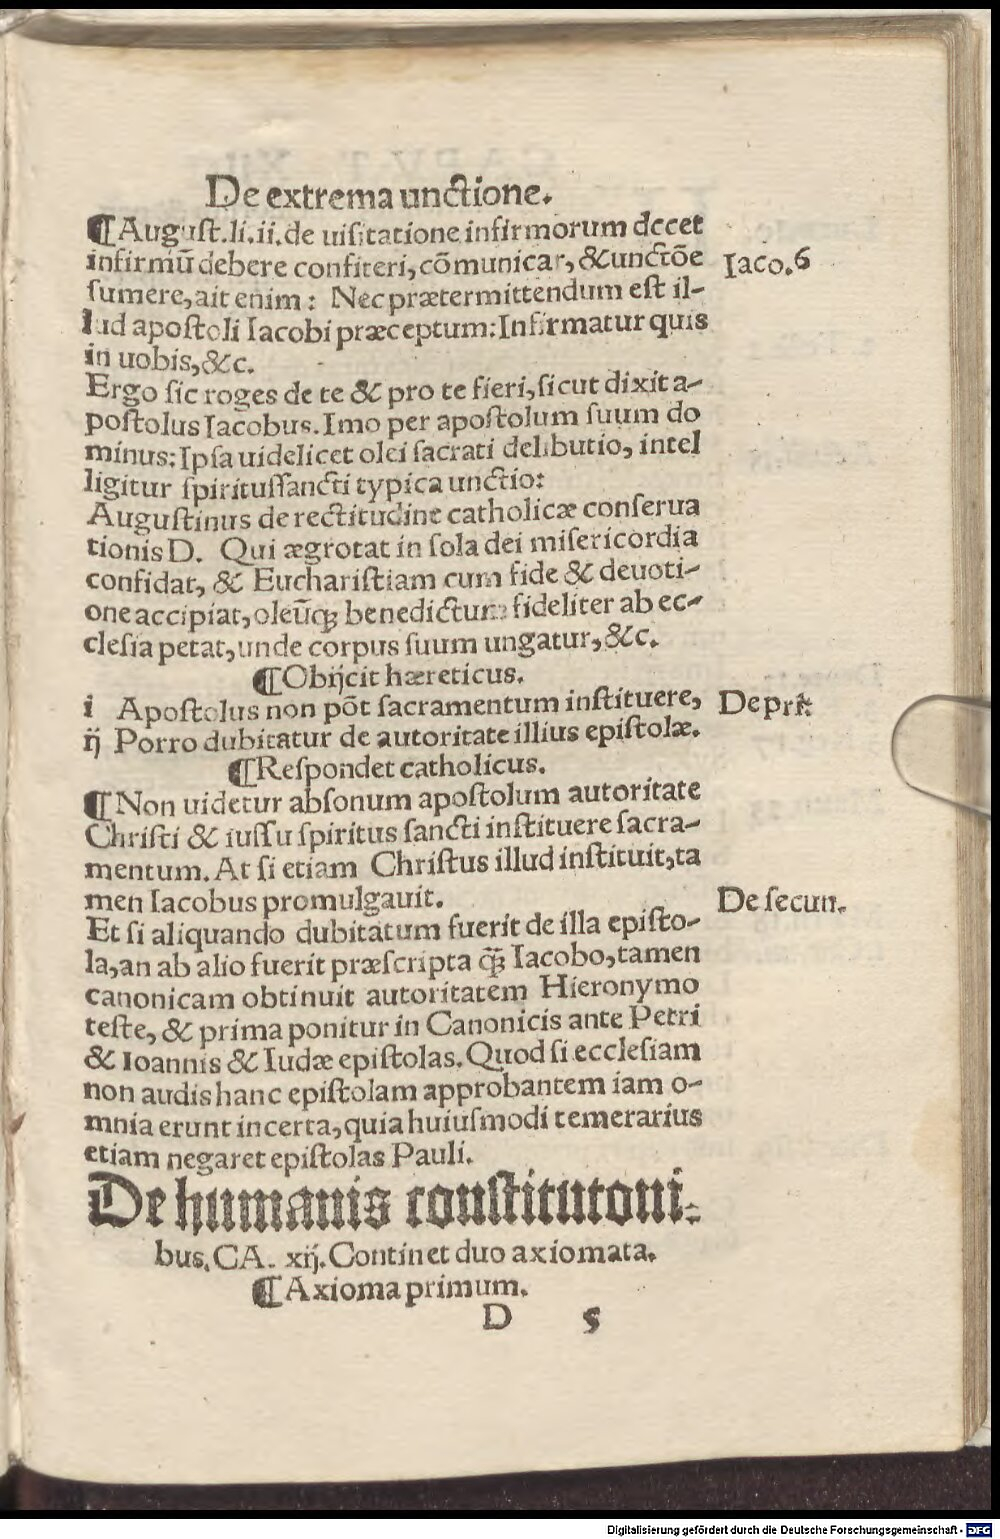 De extrema unctione.
¶ August. li. ii. de uisitatione infirmorum docet
infirmū debere confiteri, cōmunicar, & unctōe
sumere, ait enim: Nec prætermittendum est il-
lud apostoli Iacobi præceptum: Infirmatur quis
in uobis, &c.
Iaco. 6
Ergo sic roges de te & pro te fieri, sicut dixit a-
postolus Iacobus. Imo per apostolum suum do
minus: Ipsa uidelicet olei sacrati delibutio, intel
ligitur spiritussancti typica unctio:
Augustinus de rectitudine catholicæ conserua
tionis D. Qui ægrotat in sola dei misericordia
confidat, & Eucharistiam cum fide & deuoti-
one accipiat, oleūq; benedictum fideliter ab ec-
clesia petat, unde corpus suum ungatur, &c.
¶ Obijcit hæreticus.
i Apostolus non pōt sacramentum instituere,
ij Porro dubitatur de autoritate illius epistolæ.
¶ Respondet catholicus.
De pri:
¶ Non uidetur absonum apostolum autoritate
Christi & iussu spiritus sancti instituere sacra-
mentum. At si etiam Christus illud instituit, ta
men Iacobus promulgauit.
De secun.
Et si aliquando dubitatum fuerit de illa episto-
la, an ab alio fuerit præscripta q̃; Iacobo, tamen
canonicam obtinuit autoritatem Hieronymo
teste, & prima ponitur in Canonicis ante Petri
& Ioannis & Iudæ epistolas. Quod si ecclesiam
non audis hanc epistolam approbantem iam o-
mnia erunt incerta, quia huiusmodi temerarius
etiam negaret epistolas Pauli.
De humanis constitutoni-
bus. CA. xij. Continet duo axiomata.
¶ Axioma primum.
D 5
Digitalisierung gefördert durch die Deutsche Forschungsgemeinschaft - DFG